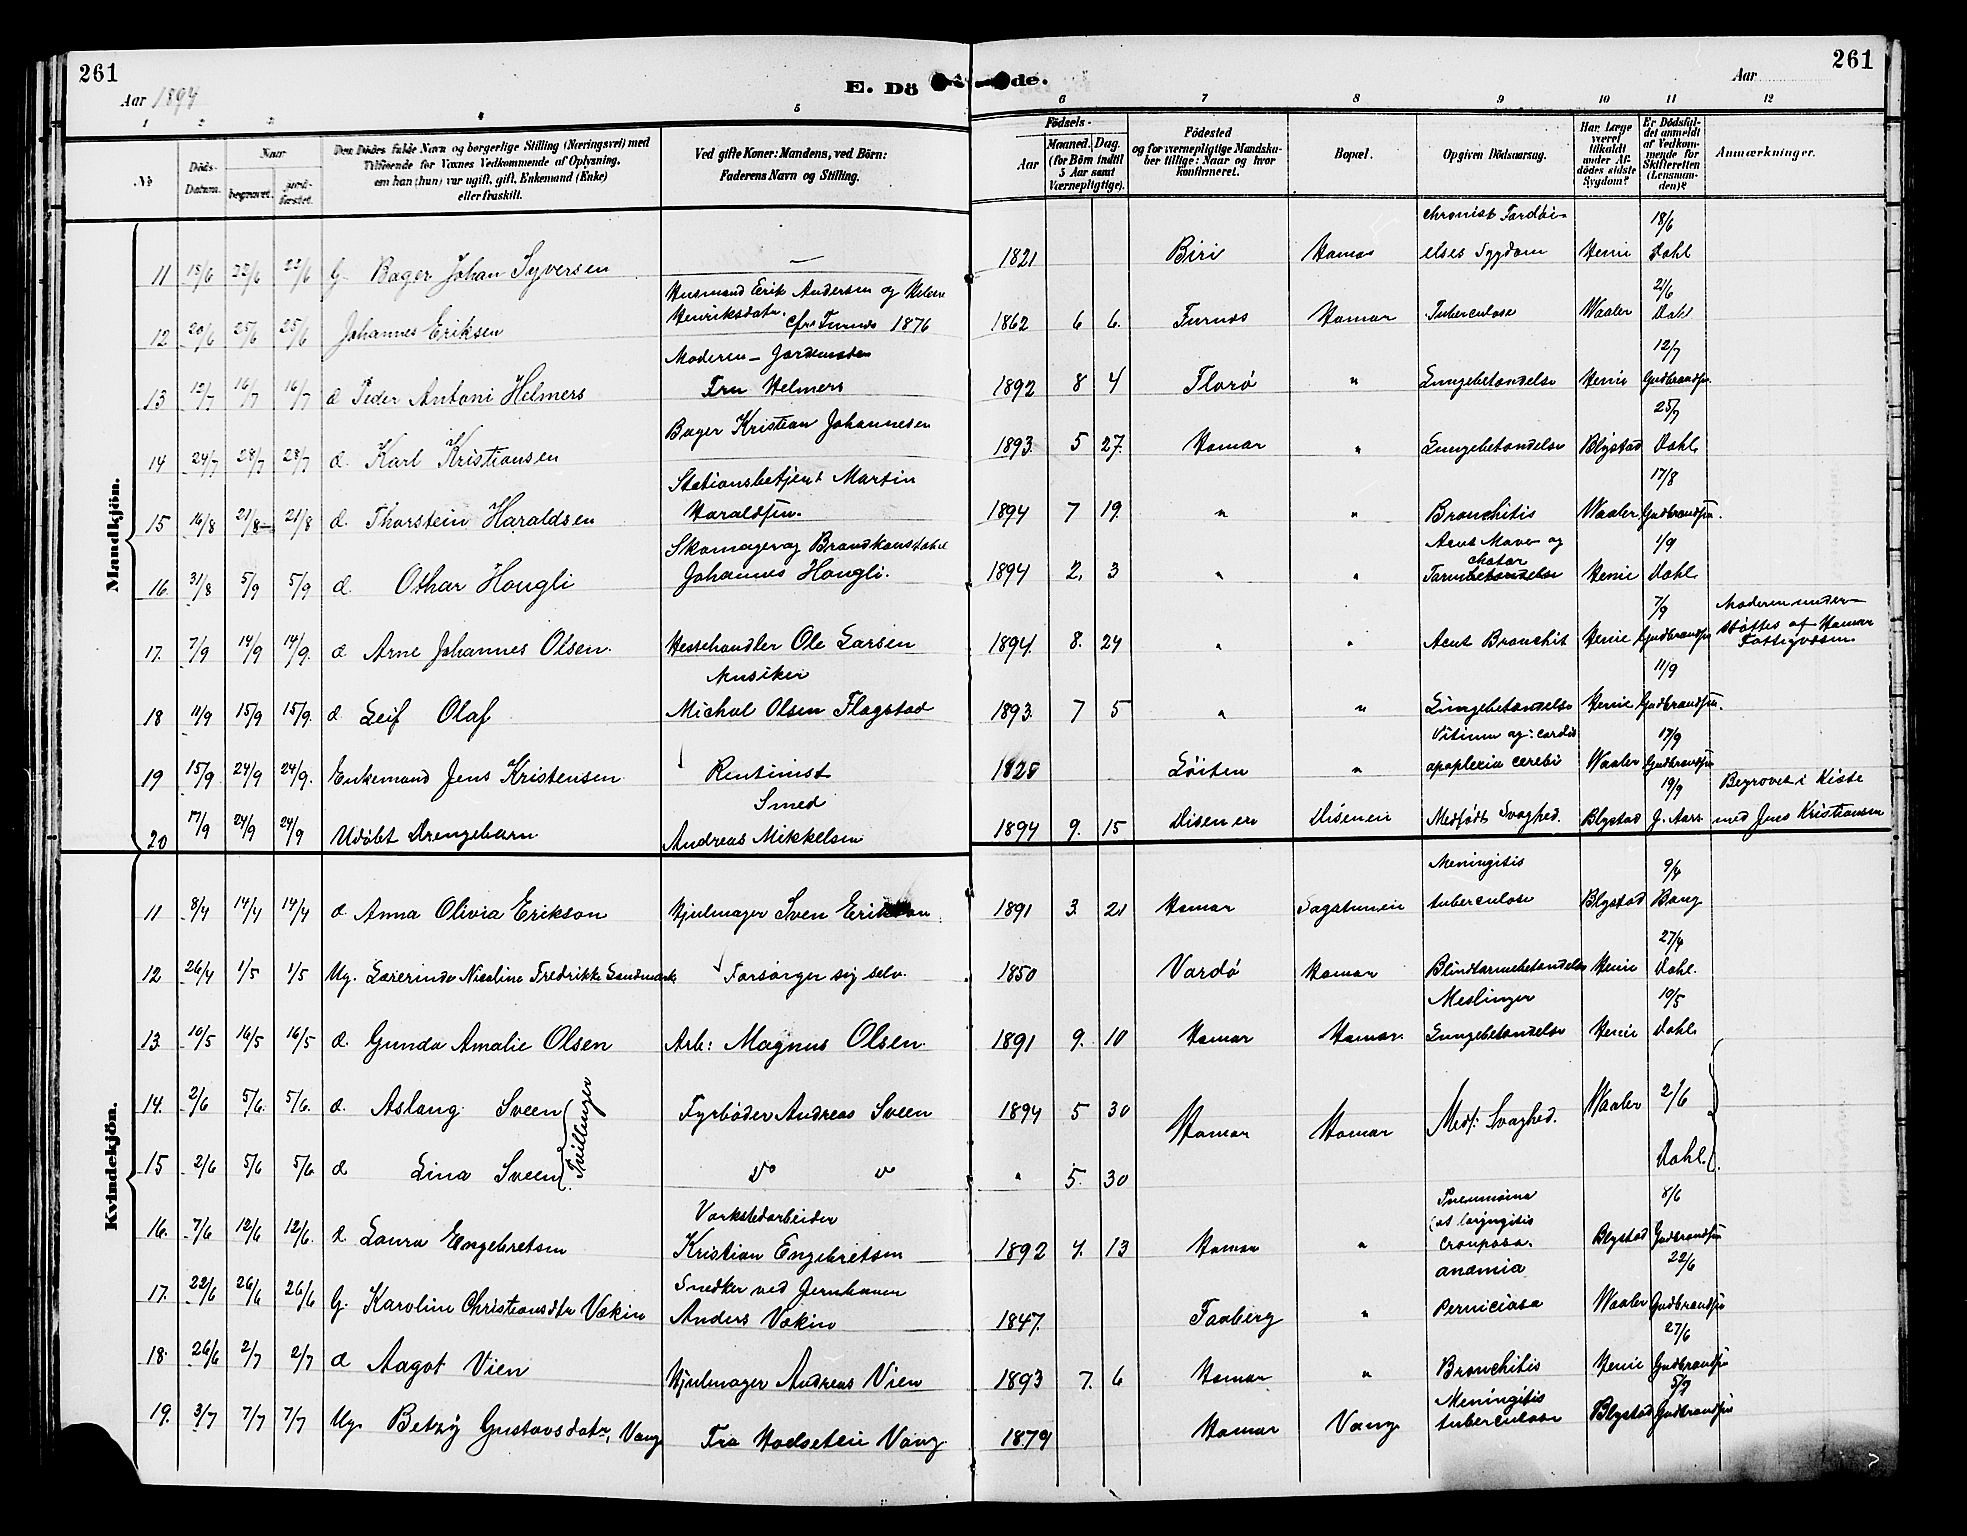 261
261
Aar 1894
E. Dö de.
Aar
1 2 3 4 5 6 7 8 9 10 11 12
No
Döds-Datum.
Naar
begravet.
jordfæstet.
Den Dödes fulde Navn og borgerlige Stilling (Næringsvei) med
Tilföiende for Voxnes Vedkommende af Oplysning,
om han (hun) var ugift, gift, Enkemand (Enke)
eller fraskilt.
Ved gifte Koner: Mandens, ved Börn:
Faderens Navn og Stilling.
Födsels-
Aar
Maaned. Dag.
(for Börn indtil
5 Aar samt
Værnepligtige).
Födested
og for værnepligtige Mandskaber tillige: Naar og hvor
konfirmeret.
Bopæl.
Opgiven Dödsaarsag.
Har Læge
været
tilkaldt
under Afdödes sidste
Sygdom?
Er Dödsfaldet anmeldt
af Vedkommende for
Skifteretten
(Lensmanden)?
Anmærkninger.
Mandkjön.
chronisk Fordöi- 18/6
11 18/6 22/6 22/6 G. Bager Johan Syversen — 1821 Biri Hamar elses Sygdom Henie Dahl
Husmand Erik Andersen og Helene 21/6
12 20/6 25/6 25/6 Johannes Eriksen Henriksdatr. cfr. Furnes 1876 1862 6 6. Furnes Hamar Tuberculose Waaler Dahl
Moderen — Jordemoder 12/7
13 12/7 16/7 16/7 d Peder Antoni Helmers Fru Helmers 1892 8 4 Florö " Lungebetændelse Henie Gudbrandsen
25/7
14 24/7 28/7 28/7 d. Karl Kristiansen Bager Kristian Johannesen 1893. 5 27. Hamar " Lungebetændelse Blystad Dahl
Stationsbetjent Martin 17/8
15 16/8 21/8 21/8 d. Thorstein Haraldsen Haraldsen. 1894 7 19. " " Bronchitis Waaler Gudbrandsen.
Skomager og Brandkonstabel Acut Mave og 1/9
16. 31/8 5/9 5/9 d. Othar Hougli Johannes Hougli. 1894 2. 3 " " Tarmbetændelse chatar Henie Dahl
7/9 Moderen under-
17. 7/9 14/9 14/9. d Arne Johannes Olsen. Hestehandler Ole Larsen 1894. 8. 24 " " Acut Bronchit Henie Gudbrandsen støttes af Hamar
Fattigvæsen
Musiker 11/9
18 11/9 15/9 15/9. d Leif Olaf Michal Olsen Flagstad 1893. 7 5 " " Lungebetændelse Henie Gudbrandsen.
Vitium og: cordis 17/9
19 15/9 24/9 24/9. Enkemand Jens Kristensen Rentinist 1825 Löiten " apoplexia cerebi Waaler Gudbrandsen
Smed 19/9 Begravet i Kiste
20 17/9 24/9 24/9 Udöbt Drengebarn Andreas Mikkelsen 1894 9. 15 Disenen Disenen Medfödt Svaghed. Blystad J. Aars med Jens Kristiansen
Kvindekjön.
Meningitis 9/4
11 8/4 14/4 14/4 d Anna Olivia Erikson Hjulmager Sven Erikson 1891 3. 21 Hamar Sagatunen tuberculose Blystad Bang
27/4
12 26/4 1/5 1/5 Ug. Lærerinde Nicoline Fredrikke Landmark Forsörger sig selv. 1850 Vardö Hamar Blindtarmbetændelse Henie Dahl.
Meslinger 10/5
13 10/5 16/5 16/5 d. Gunda Amalie Olsen Arb: Magnus Olsen. 1891 9. 10 Hamar Hamar. Lungebetændelse Henie Dahl
14. 2/6 5/6. 5/6. d. Aslaug Sveen Tvillinger Fyrböder Andreas Sveen 1894 5 30 Hamar Hamar Medf: Svaghed. Waaler 2/6
15 2/6 5/6 5/6 d Lina Sveen do do " 5. 30 Dahl.
Værkstedarbeider Pneumoina 8/6
16. 7/6 12/6 12/6. d. Laura Engebretsen Kristian Engebretsen 1892 4. 13 Hamar " (et laryngitis crouposa. Blystad Gudbrandsen
Snedker ved Jernbanen anæmia 22/6
17. 22/6 26/6 26/6 G. Karoline Christiansdtr Vækin Anders Vækin 1847. Faaberg " Perniciosa Waaler Gudbrandsen
27/6
18. 26/6 2/7 2/7 d Aagot Vien Hjulmager Andreas Vien 1893 7. 6 Hamar " Bronchitis Henie Gudbrandsen
Meningitis 5/7
19. 3/7 7/7 7/7 Ug. Betzy Gustavsdatr, Vang Fra Hodseteie Vang 1879 Hamar Vang tuberculose Blystad Gudbrandsen